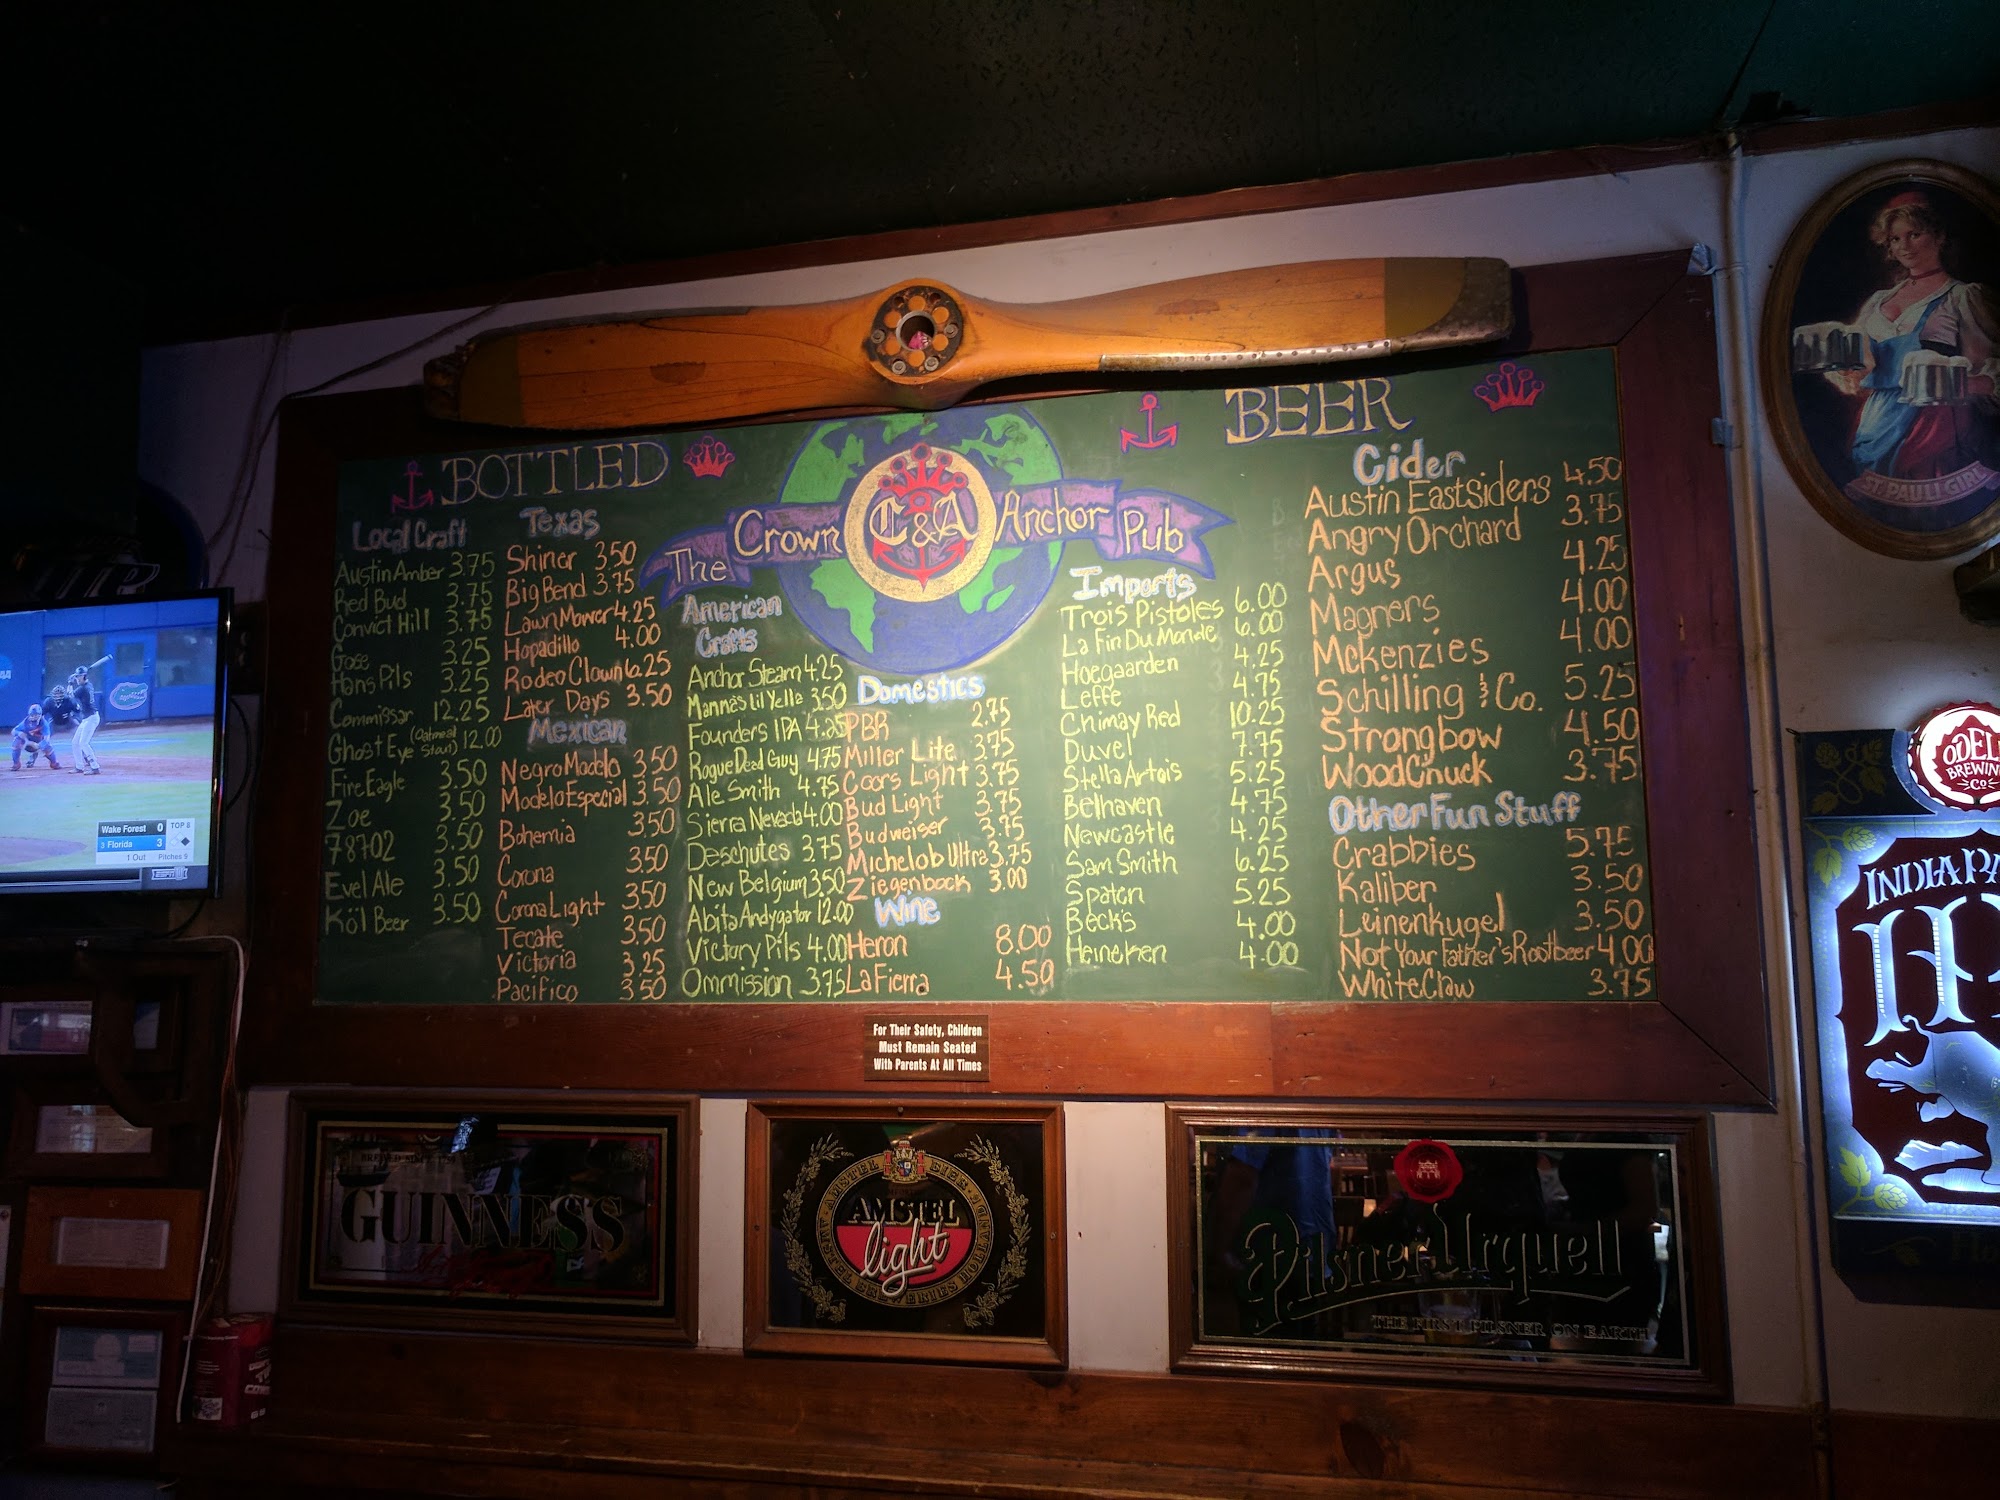 BOTTLED
BEER
The Crown C&A Anchor Pub
Local Craft
Austin Amber 3.75
Red Bud 3.75
Convict Hill 3.75
Gose 3.25
Hans Pils 3.25
Commissar 12.25
Ghost Eye (Oatmeal Stout) 12.00
Fire Eagle 3.50
Zoe 3.50
78702 3.50
Evel Ale 3.50
Köl Beer 3.50
Texas
Shiner 3.50
Big Bend 3.75
LawnMower 4.25
Hopadillo 4.00
Rodeo Clown 6.25
Later Days 3.50
Mexican
Negro Modelo 3.50
Modelo Especial 3.50
Bohemia 3.50
Corona 3.50
Corona Light 3.50
Tecate 3.50
Victoria 3.25
Pacifico 3.50
American
Crafts
Anchor Steam 4.25
Mamma's lil Yella 3.50
Founders IPA 4.25
Rogue Dead Guy 4.75
Ale Smith 4.75
Sierra Nevada 4.00
Deschutes 3.75
New Belgium 3.50
Abita Andygator 12.00
Victory Pils 4.00
Ommission 3.75
Domestics
PBR 2.75
Miller Lite 3.75
Coors Light 3.75
Bud Light 3.75
Budweiser 3.75
Michelob Ultra 3.75
Ziegenbock 3.00
Wine
Heron 8.00
La Fierra 4.50
Imports
Trois Pistoles 6.00
La Fin Du Monde 6.00
Hoegaarden 4.25
Leffe 4.75
Chimay Red 10.25
Duvel 7.75
Stella Artois 5.25
Belhaven 4.75
Newcastle 4.25
Sam Smith 6.25
Spaten 5.25
Beck's 4.00
Heineken 4.00
Cider
Austin EastSiders 4.50
Angry Orchard 3.75
Argus 4.25
Magners 4.00
Mckenzies 4.00
Schilling & Co. 5.25
Strongbow 4.50
WoodChuck 3.75
Other Fun Stuff
Crabbies 5.75
Kaliber 3.50
Leinenkugel 3.50
Not Your Father's Rootbeer 4.00
White Claw 3.75
For Their Safety, Children
Must Remain Seated
With Parents At All Times
GUINNESS
AMSTEL
light
Pilsner Urquell
THE FIRST PILSNER ON EARTH
ST. PAULI GIRL
ODELL
BREWING
CO
INDIA PA
IP
Wake Forest 0 TOP 8
3 Florida 3
1 Out Pitches 9
ESPN